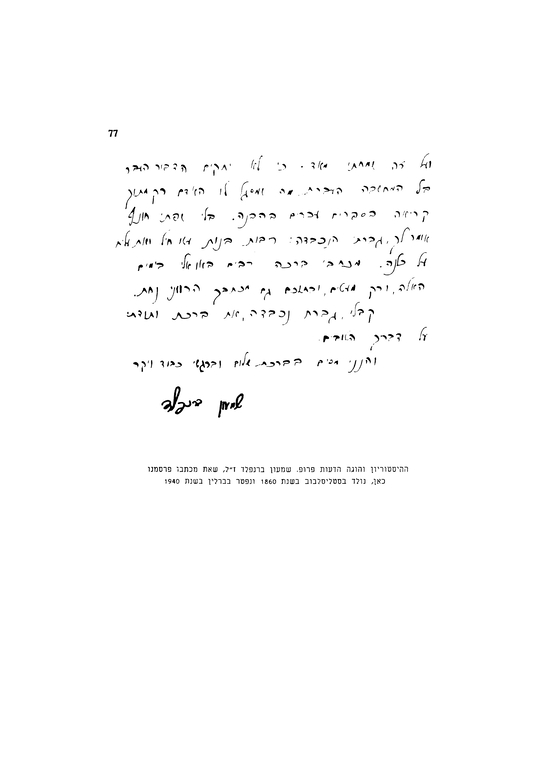 77
ועל זה שמחתי מאד. כי לא יחקים הדביר העבר
כל המחשבה העברית מה שמסגל לו האדם רק מתוך
קריאה בספרים עברים בהבנה. בלי שפתי חונף
אומר לך, גברת הנכבדה: רבות בנות עשו חיל ואת עלית
על כלנה. מכתבי ברכה רבים באו אלי בימים
האלה, ורק מעטים, ובתוכם גם מכתבך הרווני נחת.
קבלי, גברת נכבדה, את ברכת ותודתי
על דבריך הטובים.
והנני מסים בברכת שלום וברגשי כבוד ויקר
שמעון ברנפלד
ההיסטוריון והוגה הדעות פרופ. שמעון ברנפלד ז"ל, שאת מכתבו פרסמנו
כאן, נולד בסטניסלבוב בשנת 1860 ונפטר בברלין בשנת 1940